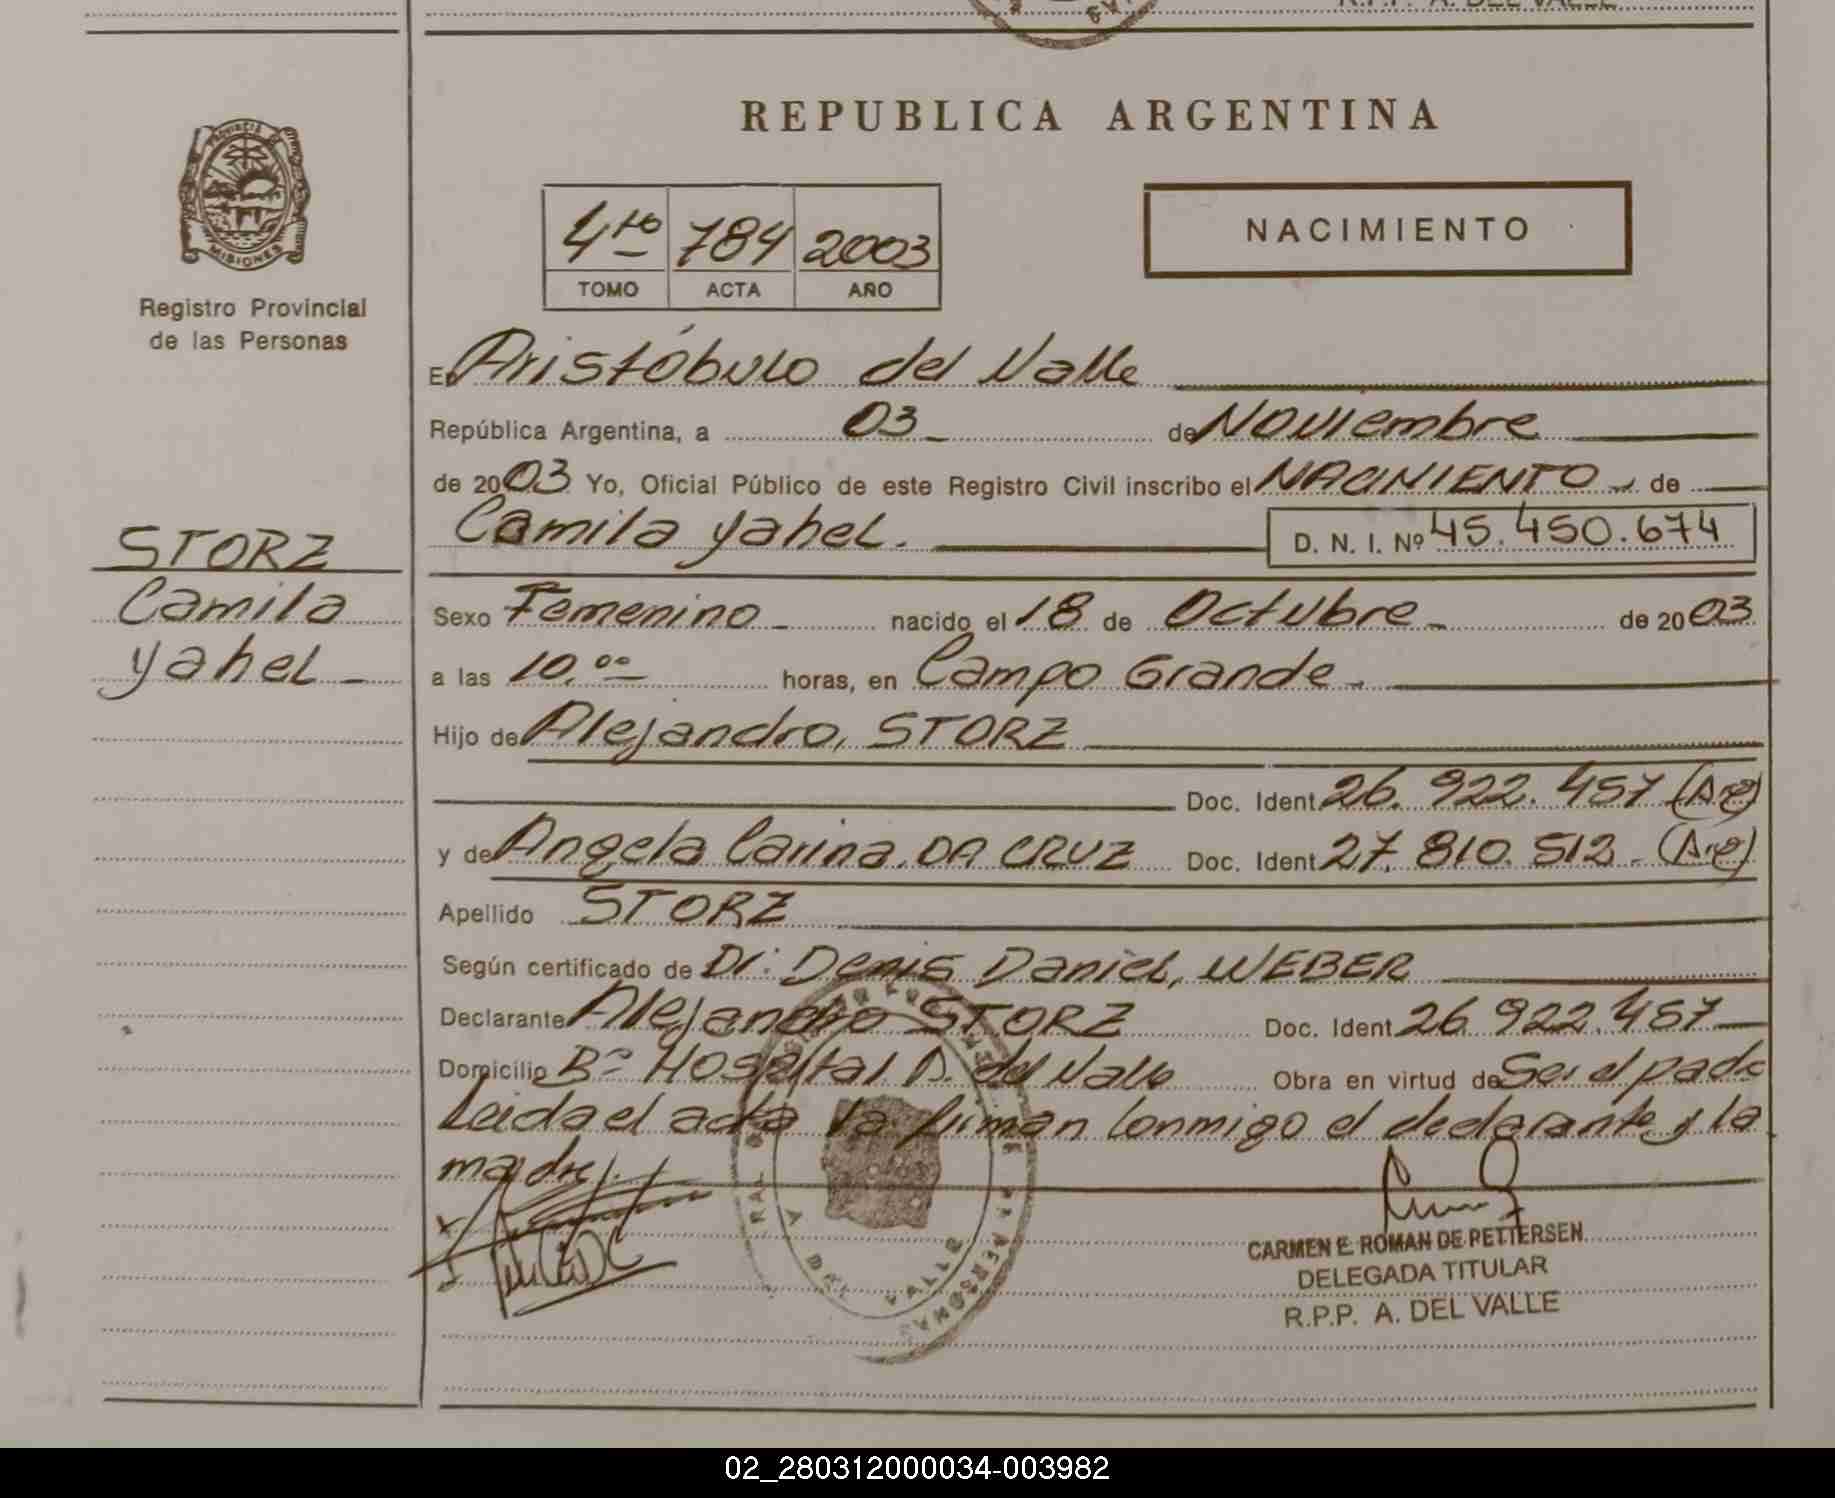 R.P.P. A. DEL VALLE
REPUBLICA ARGENTINA
PROVINCIA DE
MISIONES
Registro Provincial
de las Personas
4to 784 2003
TOMO ACTA AÑO
NACIMIENTO
En Aristóbulo del Valle
República Argentina, a 03 de Noviembre
de 2003 Yo, Oficial Público de este Registro Civil inscribo el NACIMIENTO de
Camila yahel. D. N. I. Nº 45.450.674
STORZ
Camila
yahel
Sexo Femenino nacido el 18 de Octubre de 2003
a las 10,00 horas, en Campo Grande
Hijo de Alejandro, STORZ
Doc. Ident 26.922.457 (Arg)
y de Angela Carina, DA CRUZ Doc. Ident 27.810.512 (Arg)
Apellido STORZ
Según certificado de Dr: Denis Daniel, WEBER
Declarante Alejandro STORZ Doc. Ident 26.922.457
Domicilio Bº Hospital A. del Valle Obra en virtud de Ser el padre
Leida el acta la firman conmigo el declarante y la
madre.
CARMEN E. ROMAN DE PETTERSEN
DELEGADA TITULAR
R.P.P. A. DEL VALLE
02_280312000034-003982